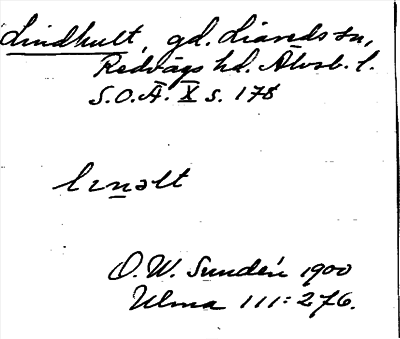 Lindhult, gd. Liareds sn,
Redvägs hd. Älvsb. l.
S.O.Ä. X s. 178
lınəlt
O. W. Sundén 1900
Ulma 111:276.